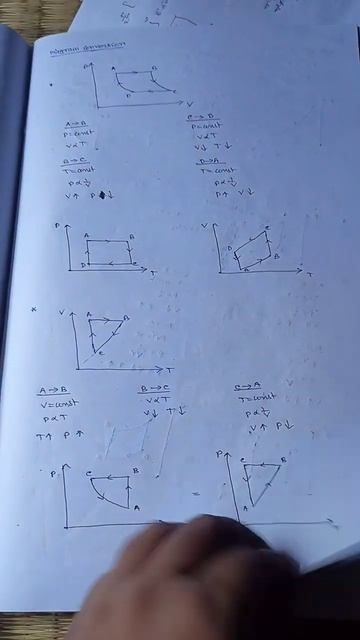 *
P
A
B
D
C
V
A → B
P = const
V ∝ T
C → D
P = const
V ∝ T
V↓ T↓
B → C
T = const
P ∝ 1/V
V↑ P↓
D → A
T = const
P ∝ 1/V
P↑ V↓
P
A
B
D
C
T
V
C
D
B
A
T
*
V
A
B
C
T
A → B
V = const
P ∝ T
T↑ P↑
B → C
V ∝ T
V↓ T↓
C → A
T = const
P ∝ 1/V
V↑ P↓
P
C
B
A
=
P
C
B
A